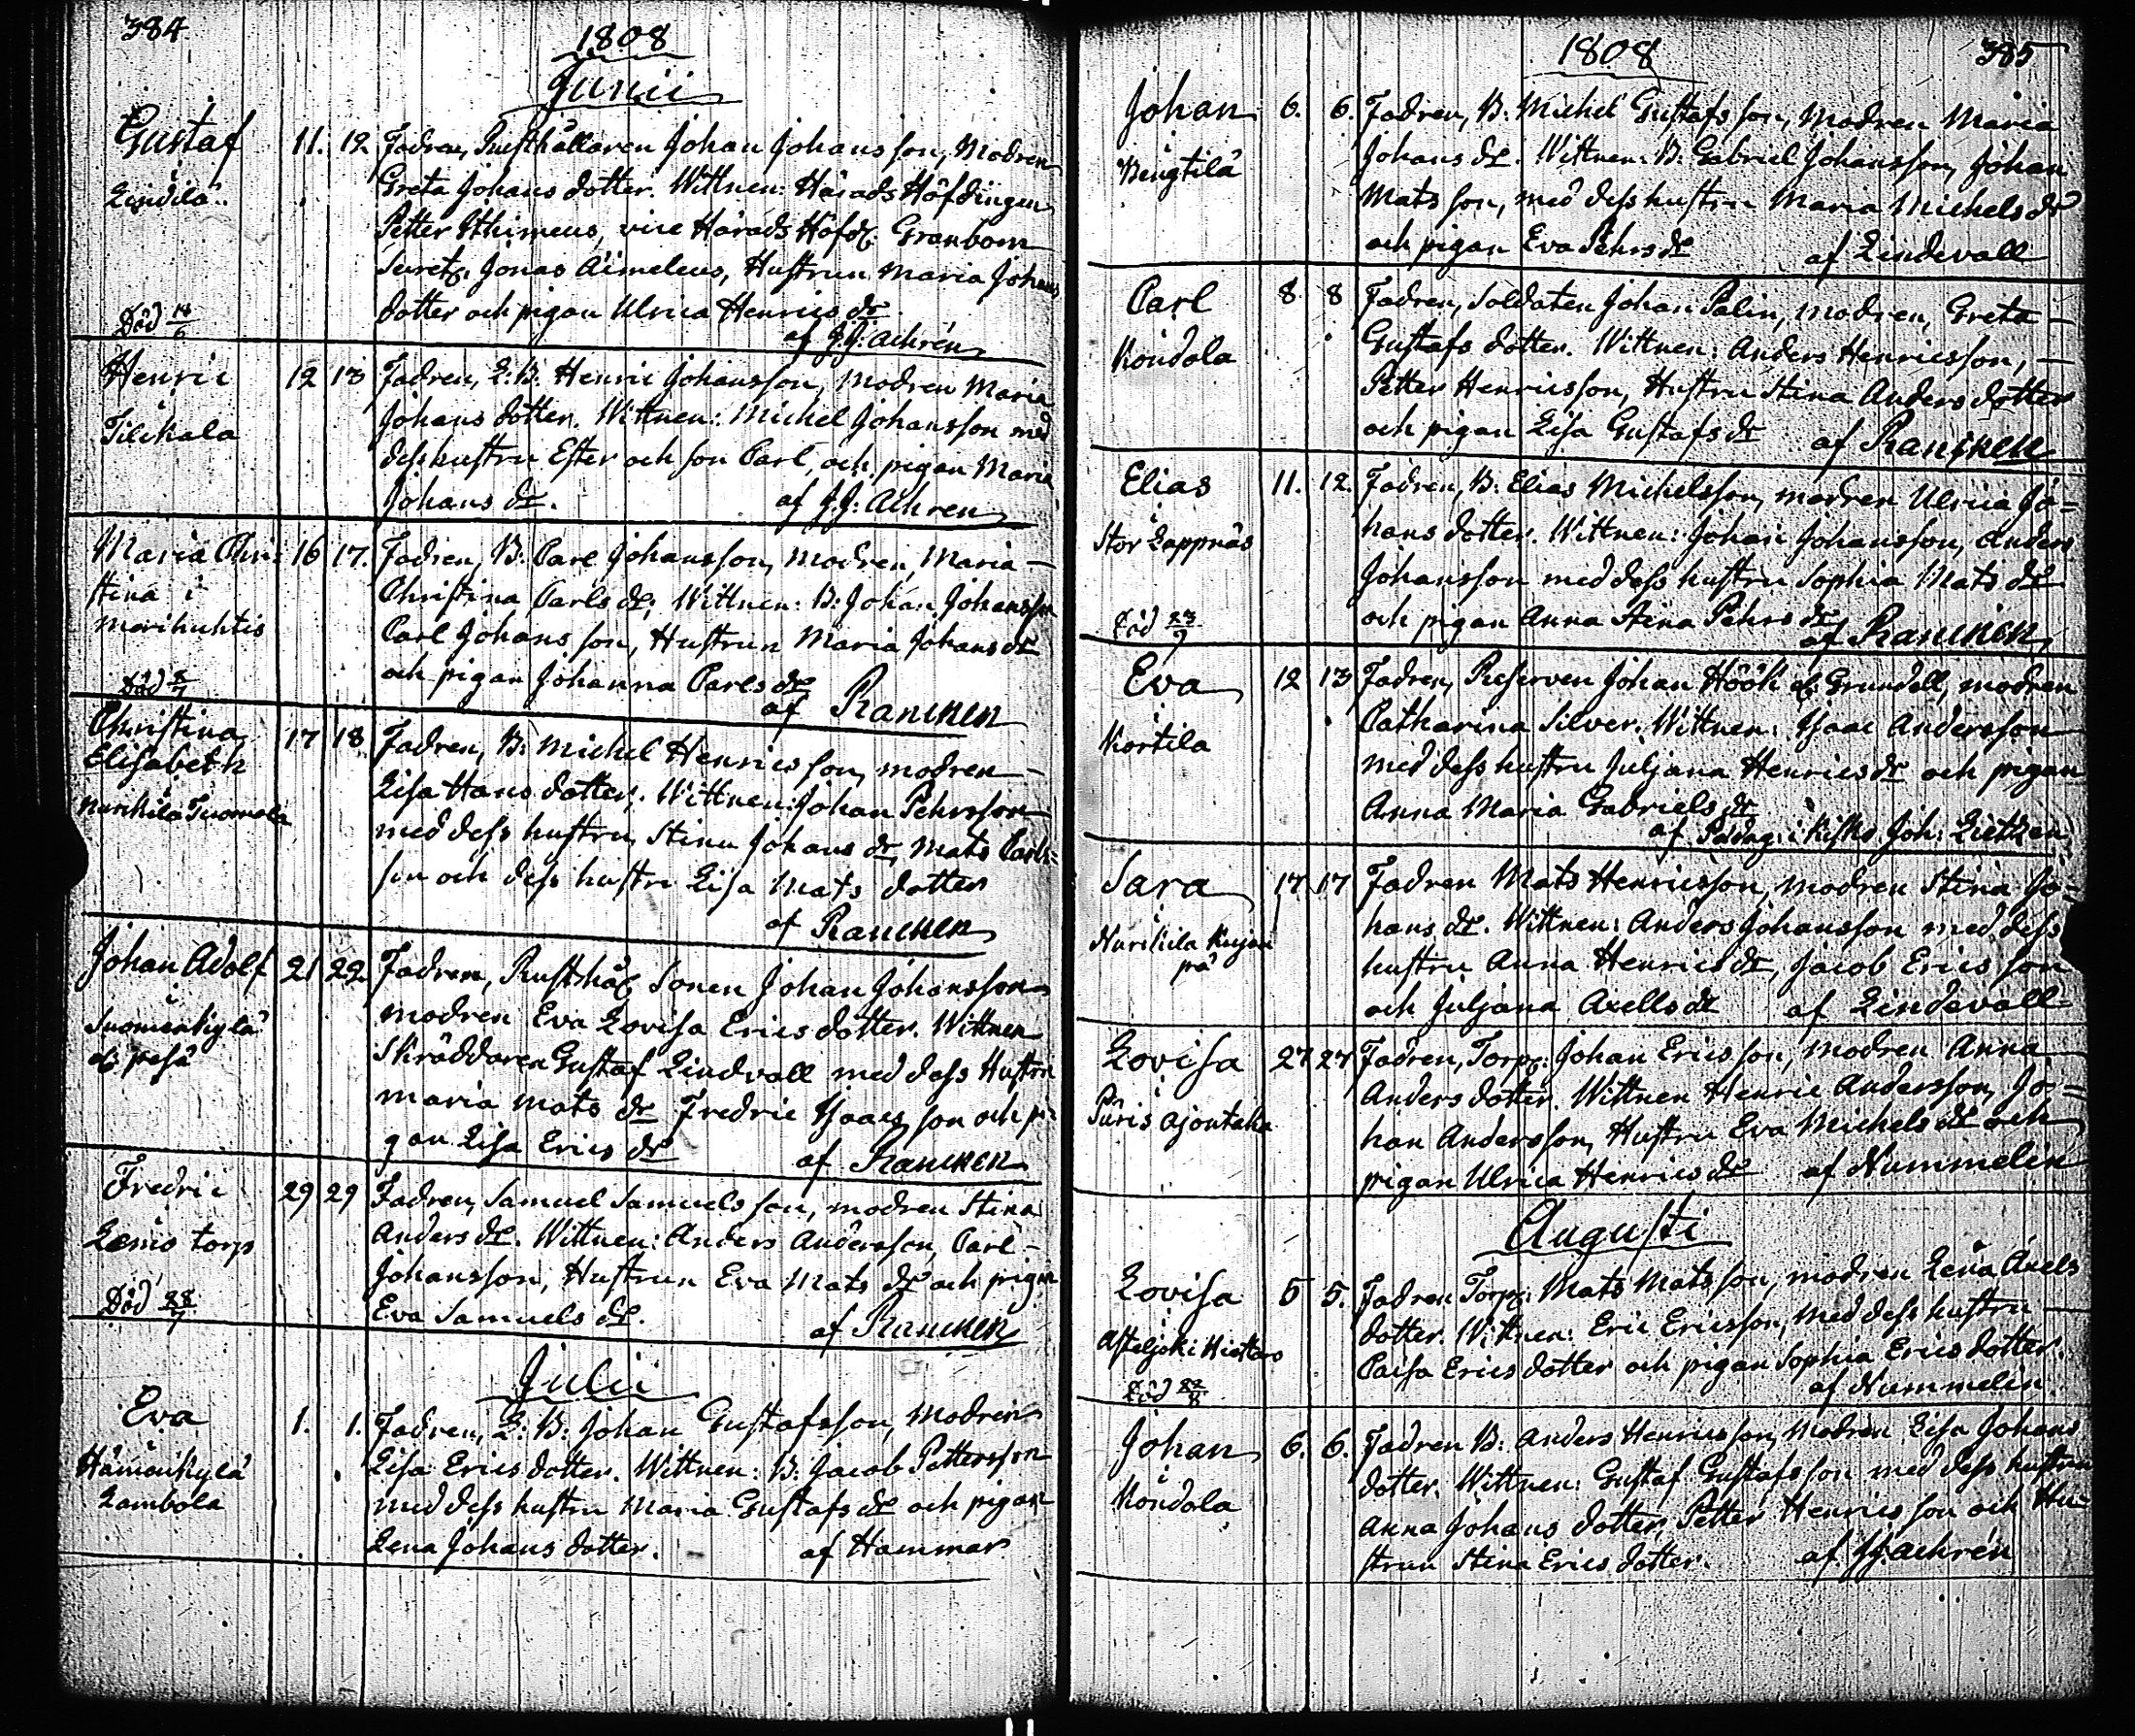 384
1808
Junii
Gustaf 11. 12 Fadren, Rusthållaren Johan Johansson, Modren
i Greta Johans dotter. Wittnen: Härads Höfdingen
Petter Ithimeus, vice Härads Höfd: Granbom
Secret: Jonas Aimeleus, Hustrun Maria Johans
Död 14/6 dotter och pigan Ulrica Henrics dr
af J.J: Achrén
Henric 12 13 Fadren, L: B: Henric Johansson, Modren Maria
i Johans dotter. Wittnen: Michel Johansson med
Tilikala dess hustru Ester och son Carl, och pigan Maria
Johans dr. af J.J: Achren
Maria Chri= 16 17. Fadren, B: Carl Johansson, modren, Maria —
stina i Christina Carls dr; Wittnen: B: Johan Johansson
Marihuhtis Carl Johansson, Hustrun Maria Johans dr
och pigan Johanna Carls dr
af Rancken
Christina 17 18. Fadren, B: Michel Henricsson, modren —
Elisabeth Lisa Hans dotter. Wittnen: Johan Pehrsson
i Nurkila Tuomola med dess hustru Stina Johans dr, Mats Carls=
son och dess hustru Lisa Mats dotter
af Rancken
Johan Adolf 21 22 Fadren, Rusthål: Sonen Johan Johansson
i modren Eva Lovisa Erics dotter. Wittnen
Suomenkylä Skräddaren Gustaf Lindvall med dess Hustru
Maria Mats dr Fredric Isaacsson och pi
gan Lisa Erics dr af Rancken
Fredric 29 29 Fadren, Samuel Samuelsson, modren Stina
i Anders dr. Wittnen: Anders Andersson, Carl —
torp Johansson, Hustrun Eva Mats dr och pigan
Död 28/7 Eva Samuels dr. af Rancken
Julii
Eva 1. 1. Fadren, L: B: Johan Gustafsson, Modren
i Lisa Erics dotter. Wittnen: B: Jacob Pettersson
Hämönkylä med dess hustru Maria Gustafs dr och pigan
Lambola Lena Johans dotter. af Hammar
1808 385
Johan 6. 6. Fadren, B: Michel Gustafsson, Modren Maria
i Johans dr. Wittnen: B: Gabriel Johansson, Johan
Bengtilä Matsson, med dess hustru Maria Michels dr
och pigan Eva Pehrs dr af Lindevall
Carl 8 8 Fadren, Soldaten Johan Palin, modren, Greta —
i Gustafs dotter. Wittnen: Anders Henricsson, —
Köndola Petter Henricsson, Hustru Stina Anders dotter
och pigan Lisa Gustafs dr af Rancken
Elias 11. 12. Fadren, B: Elias Michelsson, modren Ulrica Jo=
i hans dotter. Wittnen: Johan Johansson, Anders
Stor Lappnäs Johansson med dess hustru Sophia Mats dr
och pigan Anna Stina Pehrs dr
af Rancken
Eva 12 13 Fadren, Reserven Johan Höök el: Grundell, modren
i Catharina Silver. Wittnen: Isaac Andersson
Kortila med dess hustru Juljana Henrics dr och pigan
Anna Maria Gabriels dr
af Pædag: i Kisko Joh: Lietzen
Sara 17 17 Fadren Mats Henricsson, modren Stina Jo=
i hans dr. Wittnen: Anders Johansson med dess
Nurkila hustru Anna Henrics dr, Jacob Ericsson
och Juljana Axells dr af Lindevall
Lovisa 27 27 Fadren, Torp: Johan Ericsson, modren Anna
i Anders dotter. Wittnen Henric Andersson, Jo=
Puris Ajontaka han Andersson, Hustru Eva Michels dr och
pigan Ulrica Henrics dr af Nummelin
Augusti
Lovisa 5 5. Fadren Torp: Mats Matsson, modren Lena Axels
i dotter. Wittnen: Eric Ericsson, med dess hustru —
Caisa Erics dotter och pigan Sophia Erics dotter.
Död 22/8 af Nummelin
Johan 6. 6. Fadren B: Anders Henricsson, Modren Lisa Johans
i dotter. Wittnen: Gustaf Gustafsson med dess hustru
Köndola Anna Johans dotter, Petter Henricsson och Hu=
strun Stina Erics dotter. af J.J. Achrén